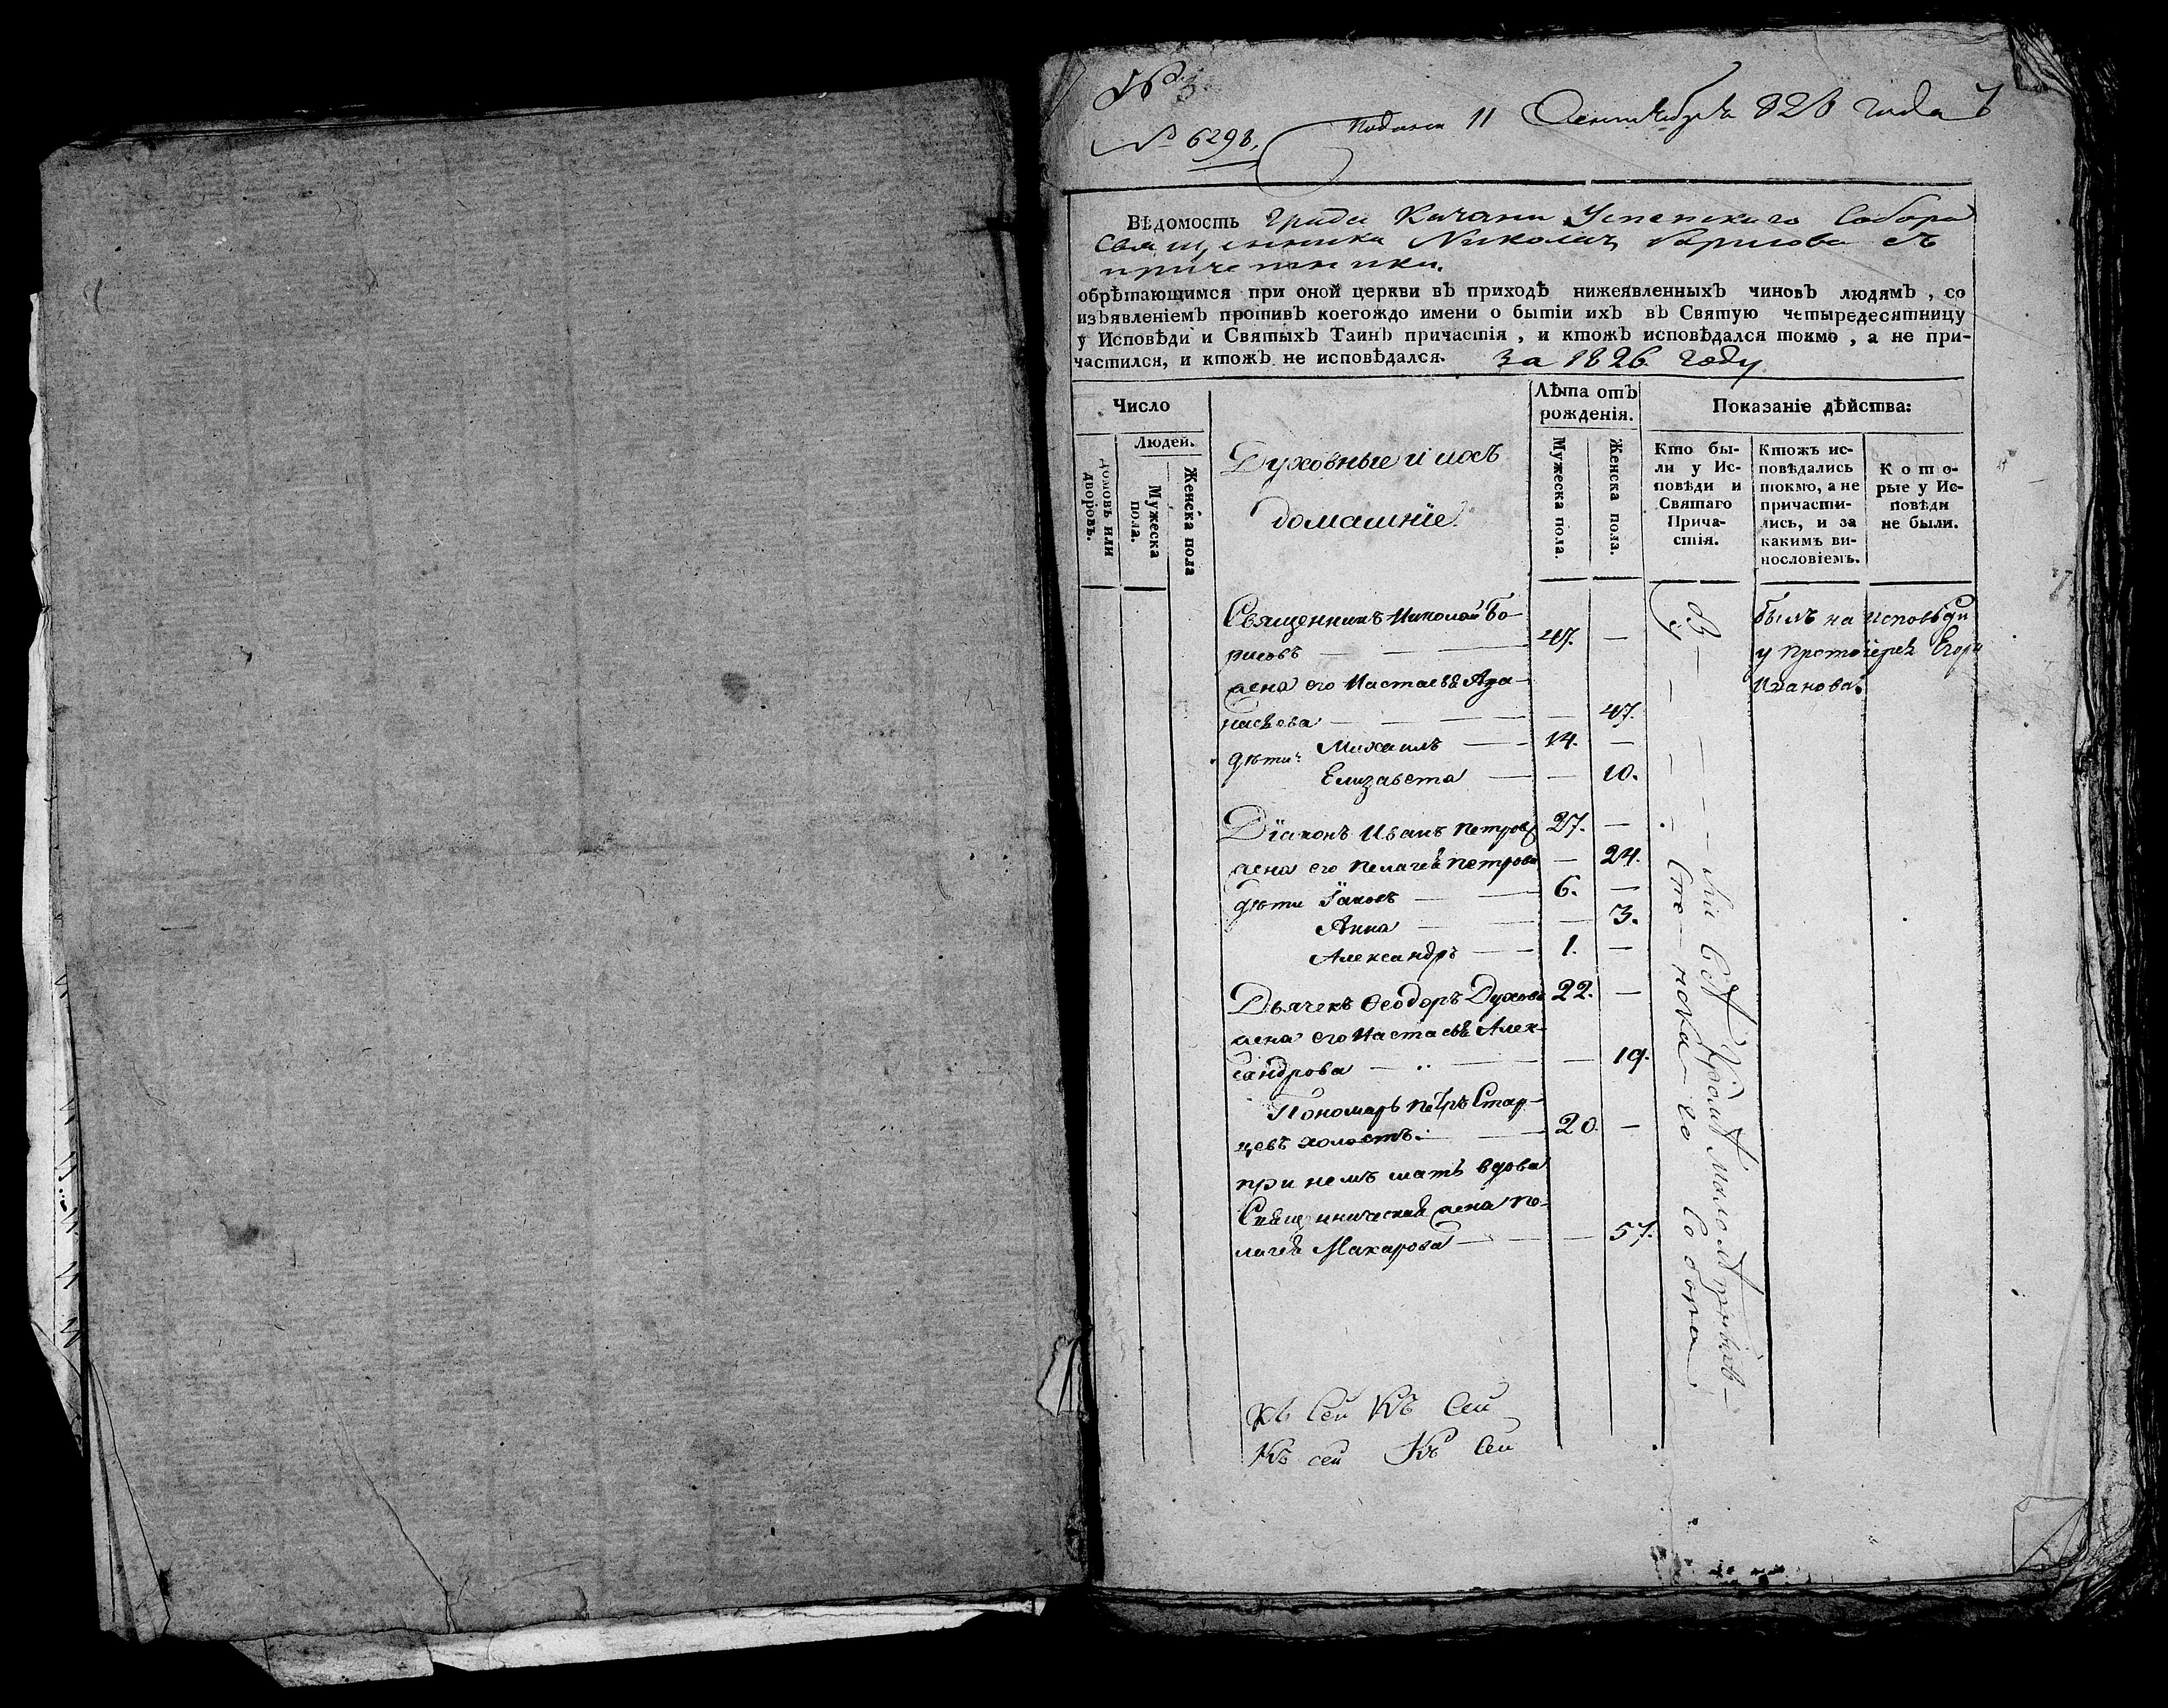 № 3
№ 6298.
Подана 11 Сентября 826 года
Вѣдомость града Кичани Успенскаго Собора
Священника Николая Борисова съ
причетники.
обрѣтающимся при оной церкви въ приходѣ нижеявленныхъ чиновъ людямъ, со
изъявленіемъ противъ коегождо имени о бытіи ихъ въ Святую четыредесятницу
у Исповѣди и Святыхъ Таинъ причастія, и ктожъ исповѣдался токмо, а не при-
частился, и ктожъ не исповѣдался. за 1826 году
Число
Людей.
домовъ или дворовъ.
Мужеска пола.
Женска пола
Духовные и ихъ
домашніе.
Лѣта отъ
рожденія.
Мужеска пола.
Женска пола.
Показаніе дѣйства:
Кто бы-
ли у Ис-
повѣди и
Святаго
Прича-
стія.
Ктожъ ис-
повѣдались
токмо, а не
причасти-
лись, и за
какимъ ви-
нословіемъ.
Кото-
рые у Ис-
повѣди
не были.
Священникъ Николай Бо-
рисовъ — 47. —
жена его Настасья Афа-
насьева — — 47.
дѣти: Михаилъ — 14. —
Елизавета — — 10.
Діаконъ Иванъ Петровъ 27. —
жена его Пелагея Петрова — 24.
дѣти Іаковъ — 6. —
Анна — — 3.
Александръ — 1. —
Дьячекъ Ѳеодоръ Духовъ 22. —
жена его Настасья Алек-
сандрова — — 19.
Пономарь Петръ Стар-
цевъ холостъ. — 20. —
при немъ мать вдова
Священническая жена Пе-
лагея Макарова — — 57.
былъ на исповѣди
у Протоіерея Егора
Иванова.
Всѣ Кромѣ малолѣтныхъ
Собора
Къ Сей Къ Сей
Къ сей Къ Сей